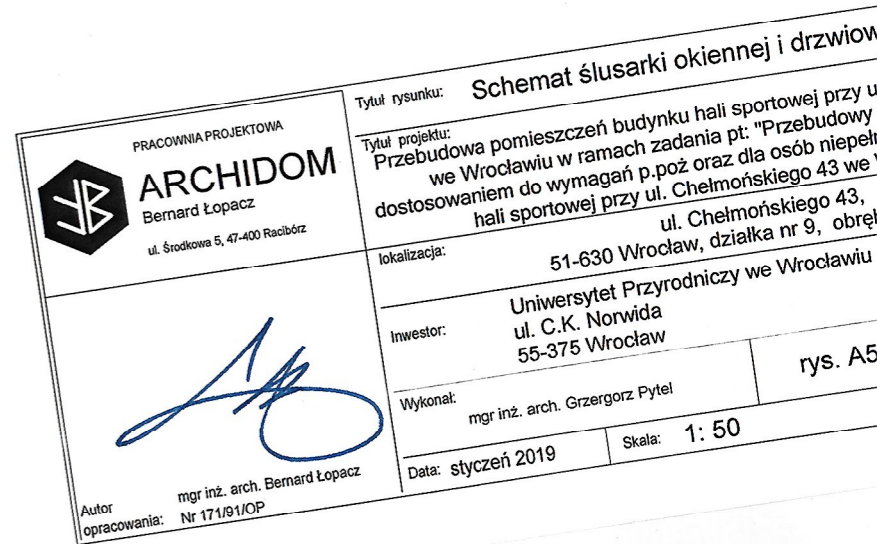 PRACOWNIA PROJEKTOWA
ARCHIDOM
Bernard Łopacz
ul. Środkowa 5, 47-400 Racibórz
Autor opracowania: mgr inż. arch. Bernard Łopacz
Nr 171/91/OP
Tytuł rysunku: Schemat ślusarki okiennej i drzwiow
Tytuł projektu:
Przebudowa pomieszczeń budynku hali sportowej przy u
we Wrocławiu w ramach zadania pt: "Przebudowy
dostosowaniem do wymagań p.poż oraz dla osób niepełn
hali sportowej przy ul. Chełmońskiego 43 we
lokalizacja: ul. Chełmońskiego 43,
51-630 Wrocław, działka nr 9, obręb
Inwestor: Uniwersytet Przyrodniczy we Wrocławiu
ul. C.K. Norwida
55-375 Wrocław
Wykonał: mgr inż. arch. Grzergorz Pytel
rys. A5
Data: styczeń 2019
Skala: 1: 50